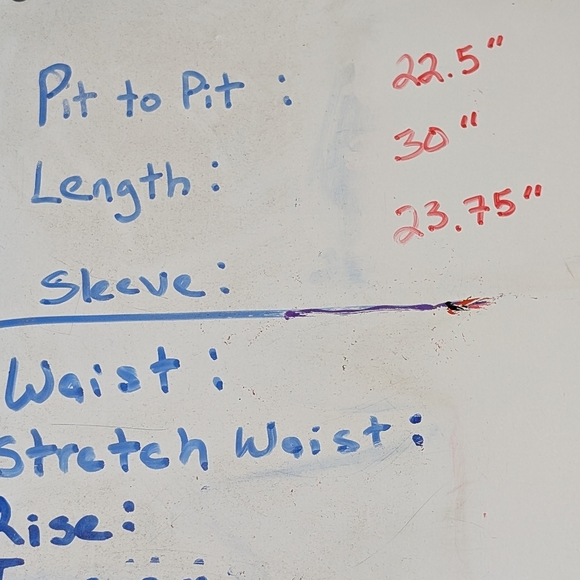 Pit to Pit : 22.5"
Length : 30"
Sleeve : 23.75"
Waist :
Stretch Waist :
Rise :